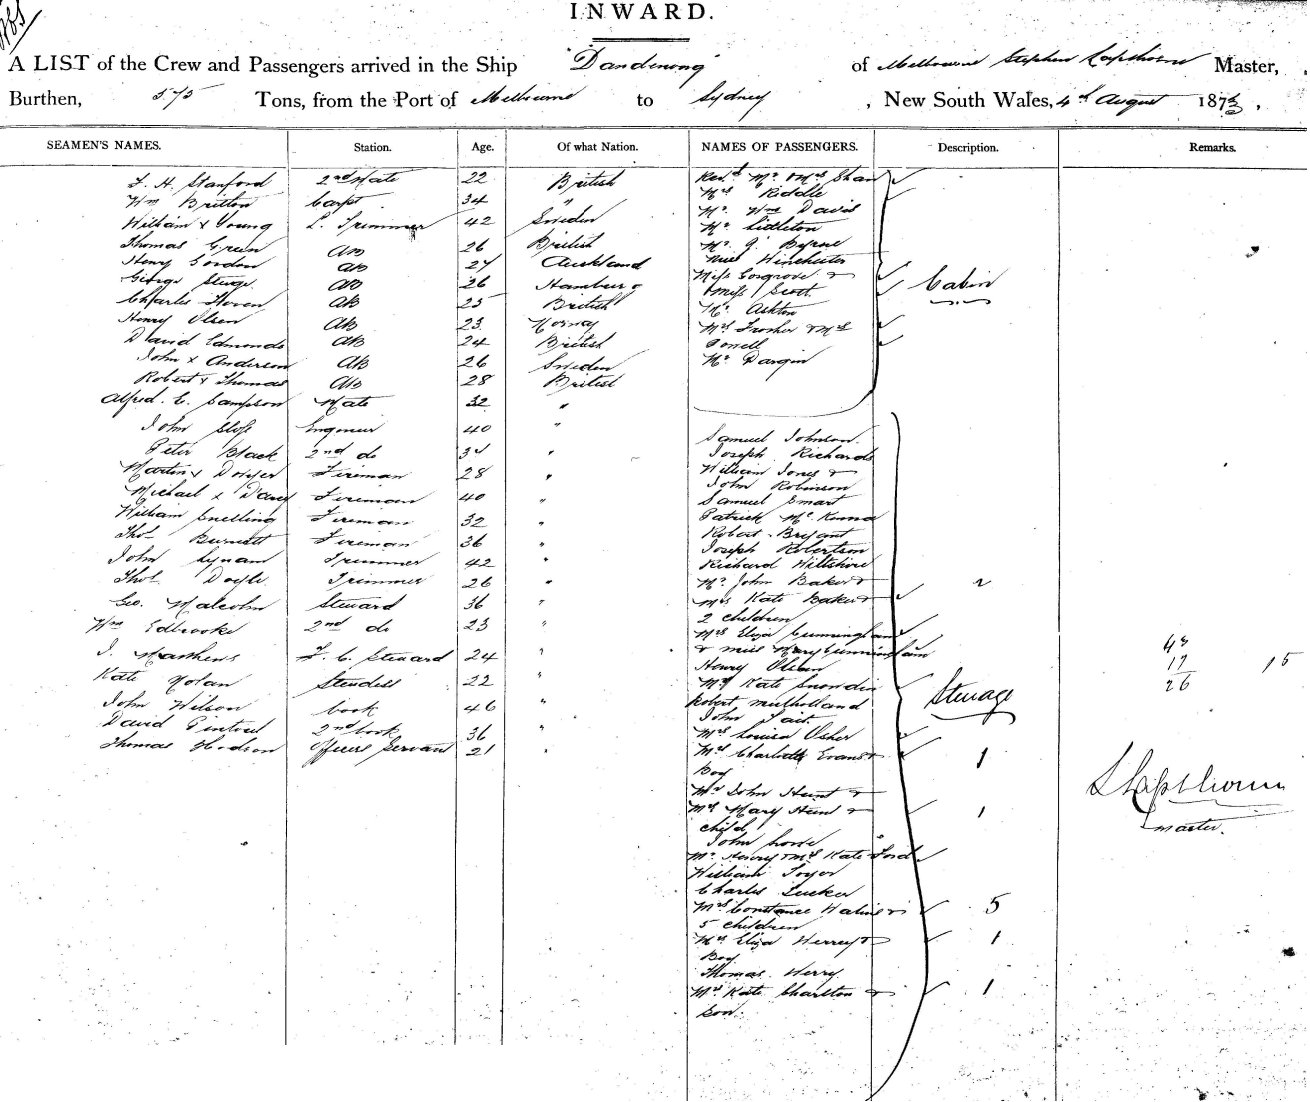 INWARD.
A LIST of the Crew and Passengers arrived in the Ship "Dandenong" of Melbourne Stephen Lapthorne Master,
Burthen, 575 Tons, from the Port of Melbourne to Sydney, New South Wales, 4th August 1873,
SEAMEN'S NAMES. Station. Age. Of what Nation. NAMES OF PASSENGERS. Description. Remarks.
F. H. Stanford 2nd Mate 22 British
Wm Britton Carpt 34 "
William x Young L. Trimmer 42 Sweden
Thomas Green AB 26 British
Henry Gordon AB 27 Auckland
George Sturge AB 26 Hamburg
Charles Heven AB 25 British
Henry Olsen AB 23 Norway
David Edmonds AB 24 British
John x Anderson AB 26 Sweden
Robert x Thomas AB 28 British
Alfred. C. Sampson Mate 32 "
John Slofs Engineer 40 "
Peter Black 2nd do 34 "
Martin x Dwyer Fireman 28 "
Michael x Darcy Fireman 40 "
William Snelling Fireman 32 "
Thos Burnett Fireman 36 "
John Lynam Trimmer 42 "
Thos Doyle Trimmer 26 "
Geo. Malcolm Steward 36 "
Wm Edbrooke 2nd do 23 "
J. Matthews F. C. Steward 24 "
Kate Nolan Stewdess 22 "
John Wilson Cook 46 "
David 2nd Cook 36 "
Thomas Hodson Officers Servant 21 "
Revd Mr & Mrs Shaw
Mrs Riddle
Mr. Wm Davis
Mr. Littleton
Mr. G. Byrne
Miss Winchester
Miss Cosgrove &
Miss Scott
Mr. Ashton
Mrs Frosher & Mrs
Powell
Mr Dargin
Cabin
Samuel Johnson.
Joseph Richards
William Jones &
John Robinson
Samuel Smart
Patrick McKenna
Robert Bryant
Joseph Robertson
Richard Wiltshire
Mr. John Baker &
Mrs Kate Baker &
2 children 2
Mrs Eliza Cunningham
& Miss Mary Cunningham
Henry Olsen
Mrs Kate Snowdin
Robert Mulholland
John Tait
Mrs Louisa Usher
Mrs Charlotte Evans &
Boy 1
Mr John Hunt &
Mrs Mary Hunt &
child 1
John
Mr. Henry & Mrs Kate Ford
William Toyer
Charles Tucker
Mrs Constance &
5 children 5
Mrs Eliza Herrey &
Boy 1
Thomas. Herry
Mrs Kate Charlton &
Son. 1
Steerage
43
17 15
26
S Lapthorne
master.